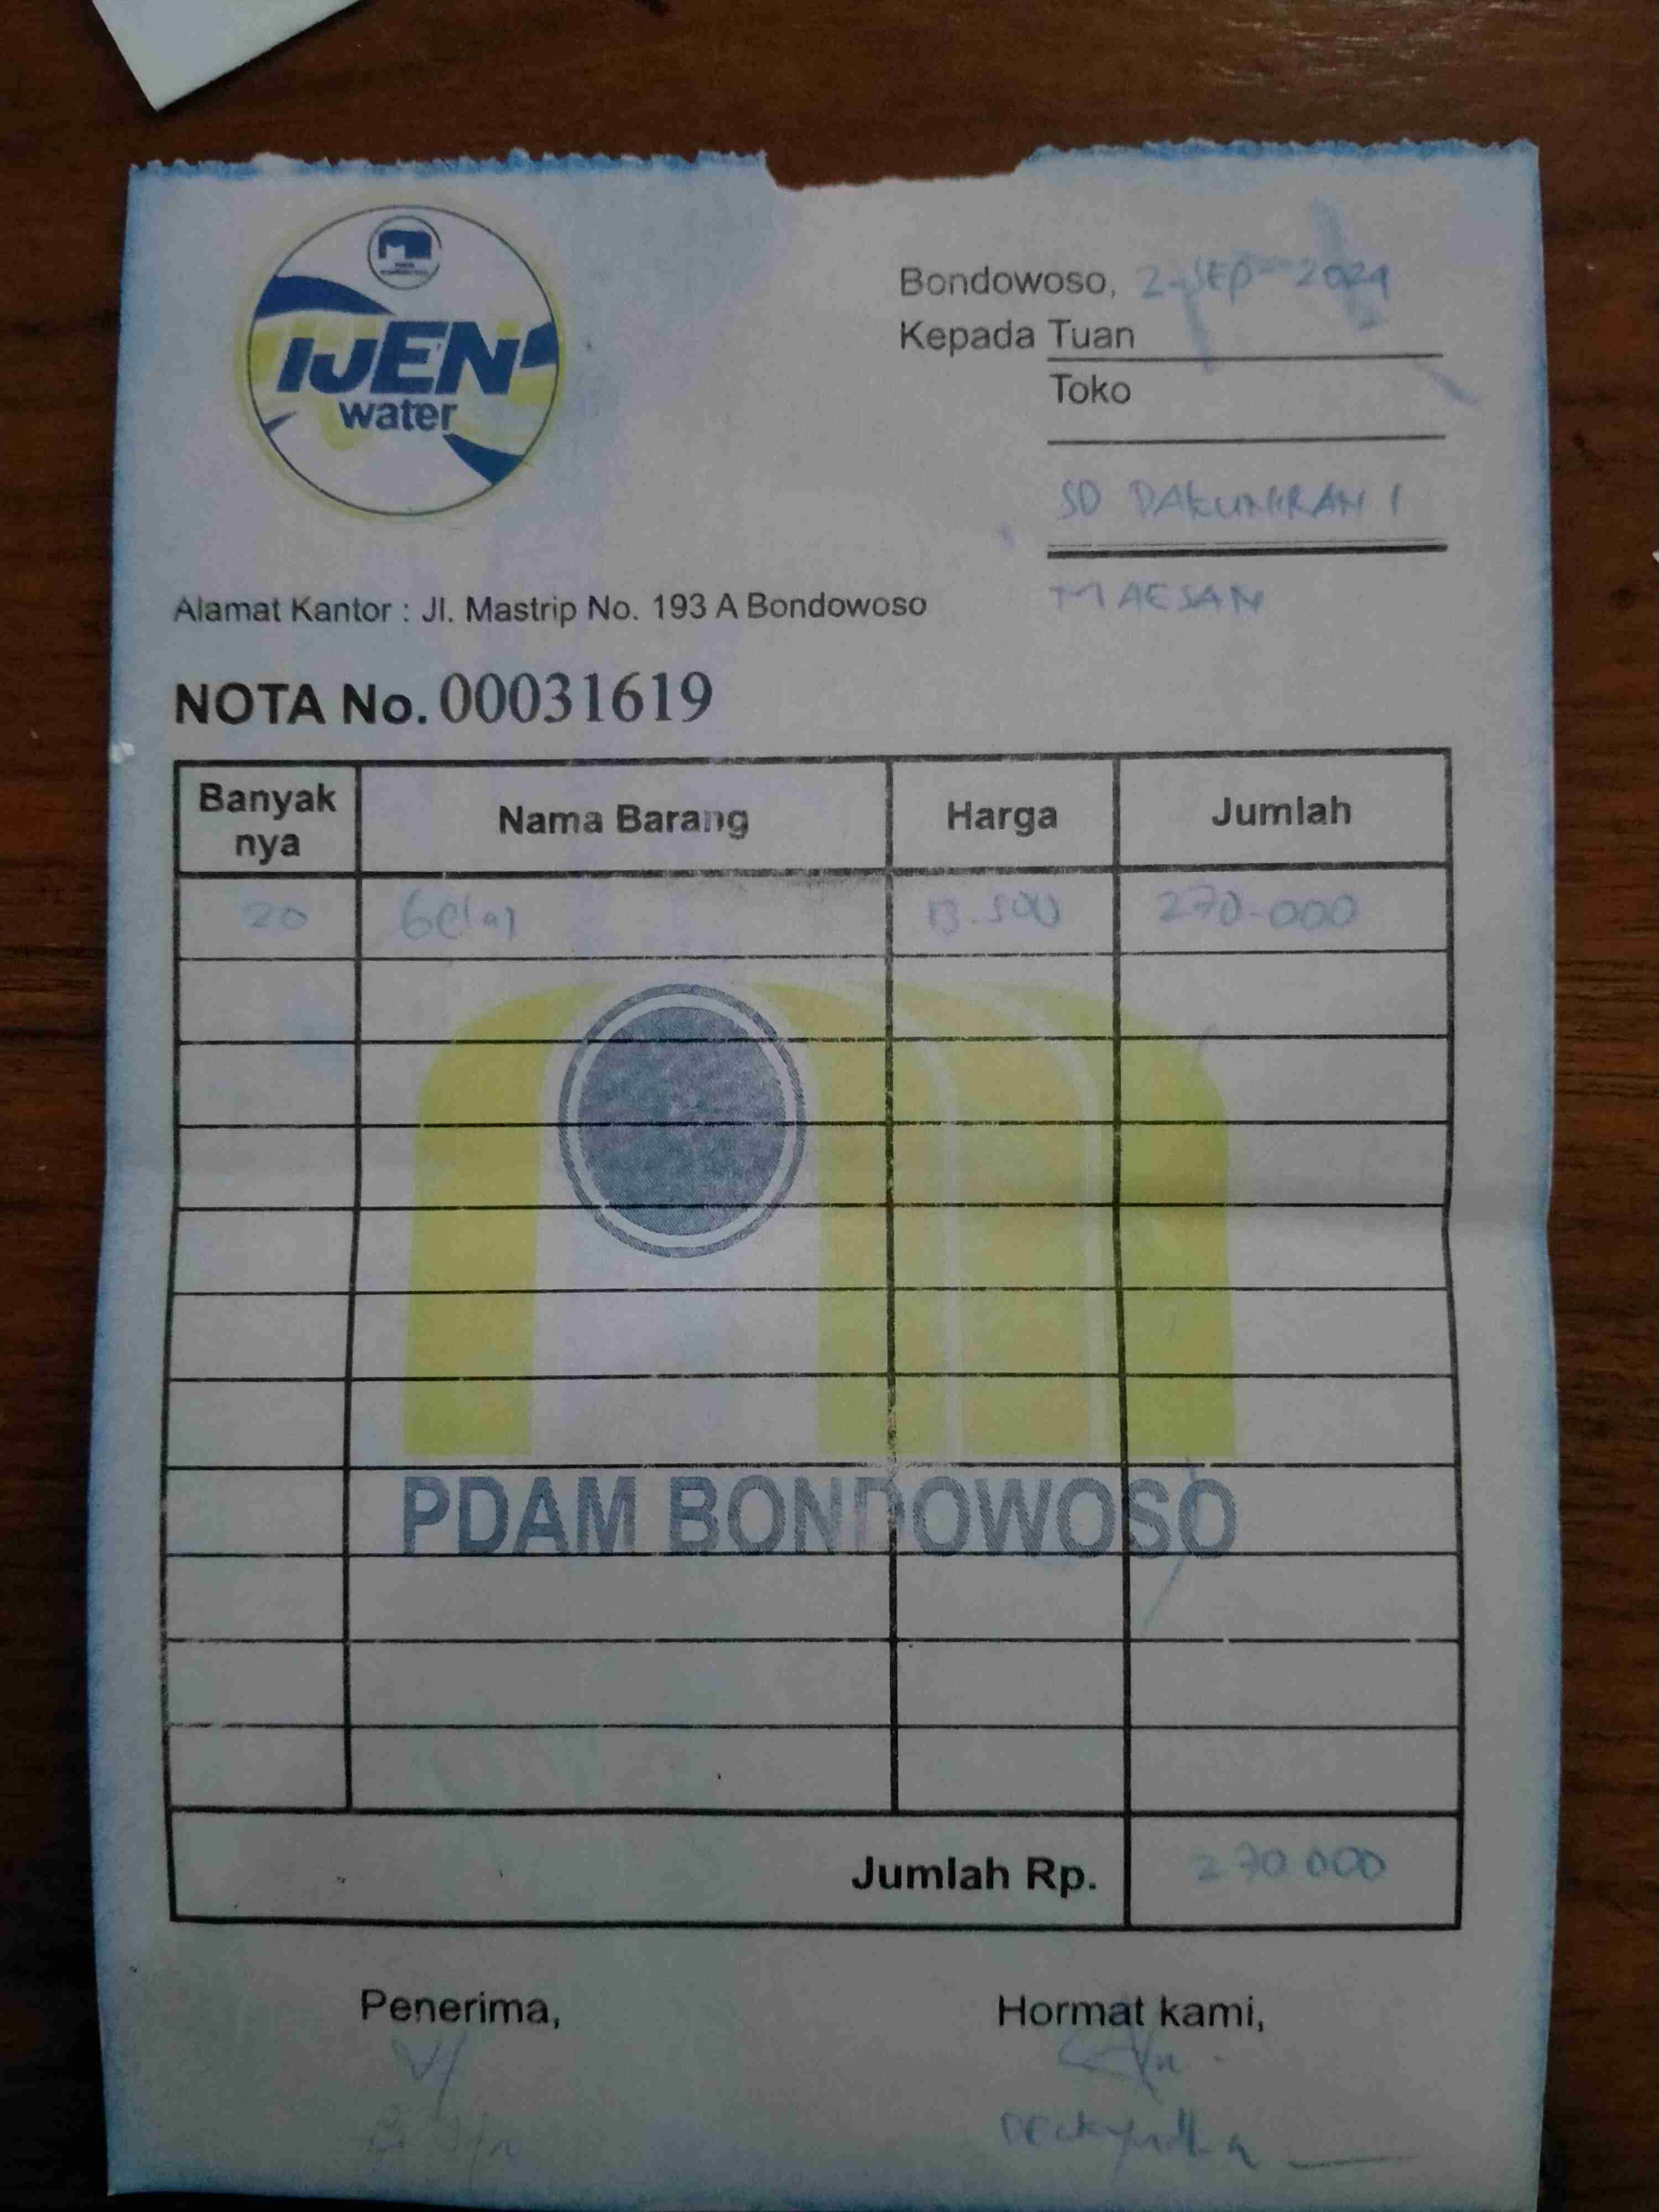 IJEN
water
Bondowoso, 2-SEP-2024
Kepada Tuan
Toko
SD PAKUNIRAN 1
MAESAN
Alamat Kantor : Jl. Mastrip No. 193 A Bondowoso
NOTA No. 00031619
Banyak nya Nama Barang Harga Jumlah
20 Gelas 13.500 270.000
PDAM BONDOWOSO
Jumlah Rp. 270.000
Penerima, Hormat kami,